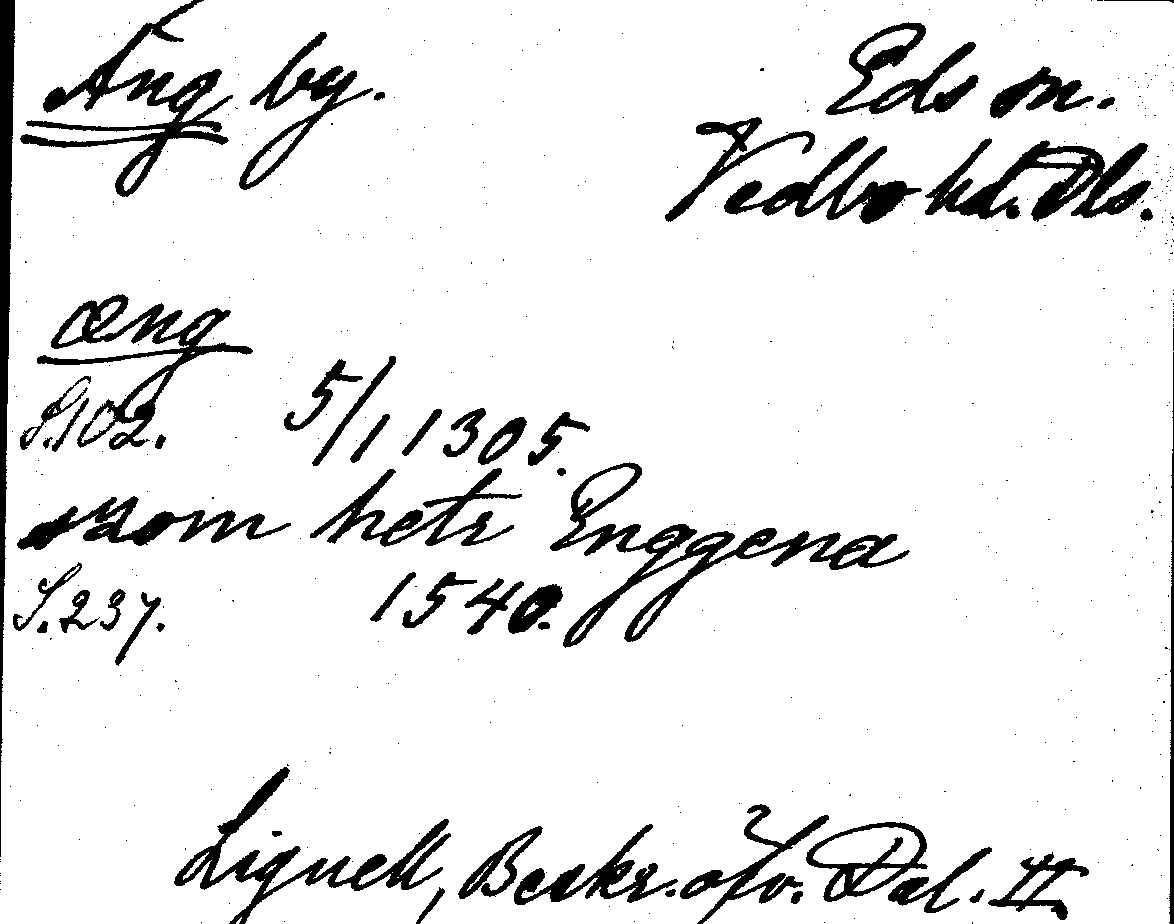 Äng by.
Eds sn.
Vedbo hd. Dls.
æng
S.102. 5/11 1305.
som hetr Enggena
S.237. 1540.
Lignell, Beskr. öfv. Dal. II.